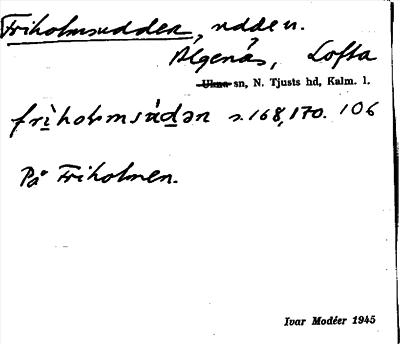 Friholmsudden, udde n.
Älgenäs, Lofta
Ukna sn, N. Tjusts hd, Kalm. l.
friholmsudən s. 168, 170. 106
På Friholmen.
Ivar Modéer 1945